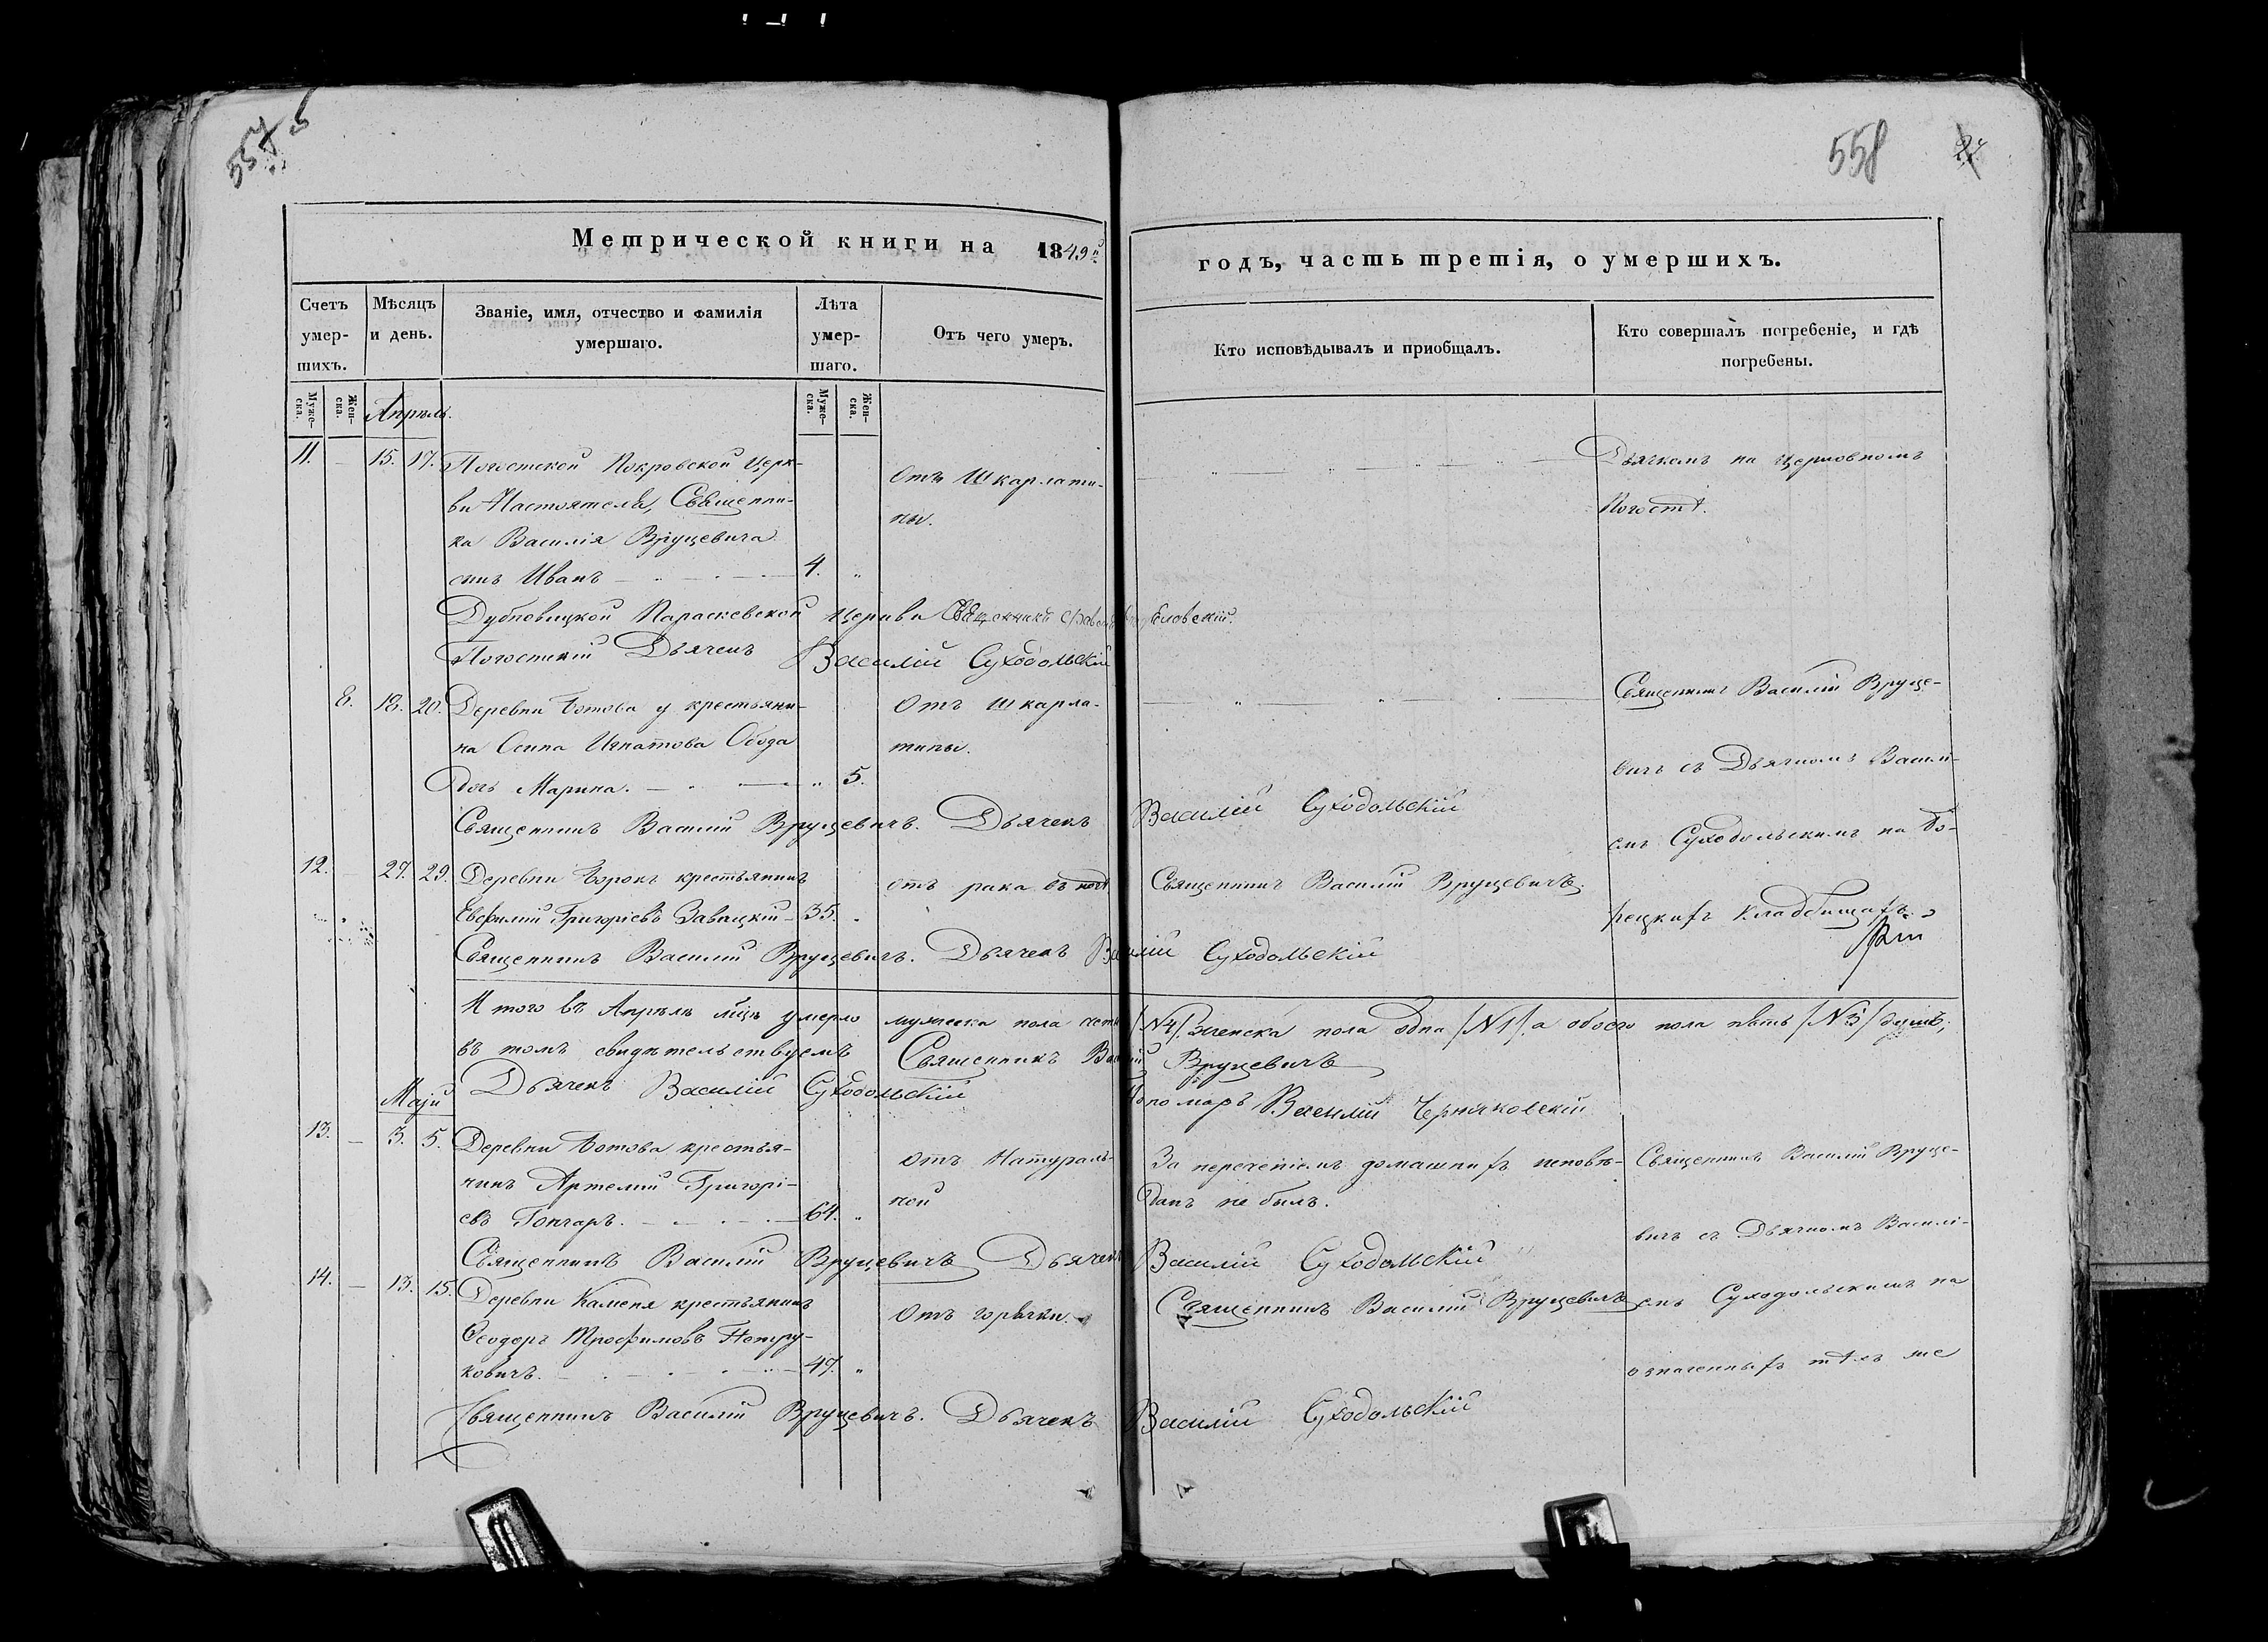 557
558
27
Метрической книги на 1849й
годъ, часть третія, о умершихъ.
Счетъ умер-шихъ.
Мѣсяцъ и день.
Званіе, имя, отчество и фамилія умершаго.
Лѣта умер-шаго.
Отъ чего умеръ.
Кто исповѣдывалъ и приобщалъ.
Кто совершалъ погребеніе, и гдѣ погребены.
Муже-ска.
Жен-ска.
Муже-ска.
Жен-ска.
Апрѣль.
11. 15. 17. Погостской Покровской Церк-
ви Настоятеля, Священни-
ка Василія Вруцевича
сынъ Иванъ 4.
Отъ Шкарлати-
ны.
Дьячкомъ на Церковномъ
Погостѣ.
Дубновицкой Параскевской Церкви Священникъ
Погостскій Дьячекъ Василій Суходольскій
8. 18. 20. Деревни Ботова у крестьяни-
на Осипа Игнатова Обода
дочь Марина. 5.
Отъ шкарла-
тины.
Священникъ Василій Вруце-
вичъ съ Дьячкомъ Васили-
емъ Суходольскимъ на Бо-
рецкихъ Кладбищахъ
Священникъ Василій Вруцевичъ. Дьячекъ Василій Суходольскій
12. 27. 29. Деревни Борокъ крестьянинъ
Евфимій Григоріевъ Завацкій 35.
отъ рака въ ногѣ
Священникъ Василій Вруцевичъ.
Священникъ Василій Вруцевичъ. Дьячекъ Василій Суходольскій
Итого въ Апрѣлѣ мцѣ умерло мужеска пола четыре /№4/. женска пола одна /№1/. а обоего пола пять /№5/ душъ,
въ томъ свидѣтельствуемъ Священникъ Василій Вруцевичъ
Дьячекъ Василій Суходольскій Пономарь Василій Черняковскій
Маій
13. 3. 5. Деревни Ботова крестья-
нинъ Артемій Григорі-
евъ Гончаръ. 64.
отъ Натураль-
ной
За нерченіемъ домашнихъ исповѣ-
данъ не былъ.
Священникъ Василій Вруце-
вичъ съ Дьячкомъ Василі-
емъ Суходольскимъ на
означенныхъ тѣхъ же
Священникъ Василій Вруцевичъ Дьячекъ Василій Суходольскій
14. 13. 15. Деревни Каменя крестьянинъ
Ѳеодоръ Трофимовъ Петру-
ковичъ. 47.
Отъ горячки.
Священникъ Василій Вруцевичъ
Священникъ Василій Вруцевичъ. Дьячекъ Василій Суходольскій